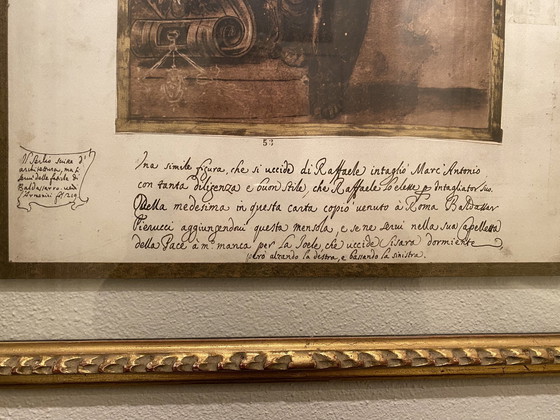 53
Una simile figura, che si uccide di Raffaele intagliò Marc'Antonio
con tanta diligenza e buon stile, che Raffaele lo elesse p intagliator suo.
Della medesima in questa carta copiò venuto à Roma Baldasser
Perucci aggiungendovi questa mensola, e se ne servì nella sua Capelletta
della Pace à mº manca per la Joele, che uccide Sisara dormiente
però alzando la destra, e bassando la sinistra.
scrisse d'
architettura, ma si
servì delle fatiche di
Baldassarro. vedi
Armenini fº 219